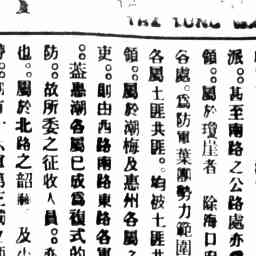 THE TUNG WA
派。甚至南路之公路處亦
領。屬於瓊崖者 除海口
各處。為防軍葉團勢力範圍
各屬土匪共匪。均被土匪共
領。屬於潮梅及惠州各屬
吏。則由西路南路東路各軍
。蓋惠潮各屬已成為複式的
防。故所委之征收人員。亦
也。屬於北路之韶 及